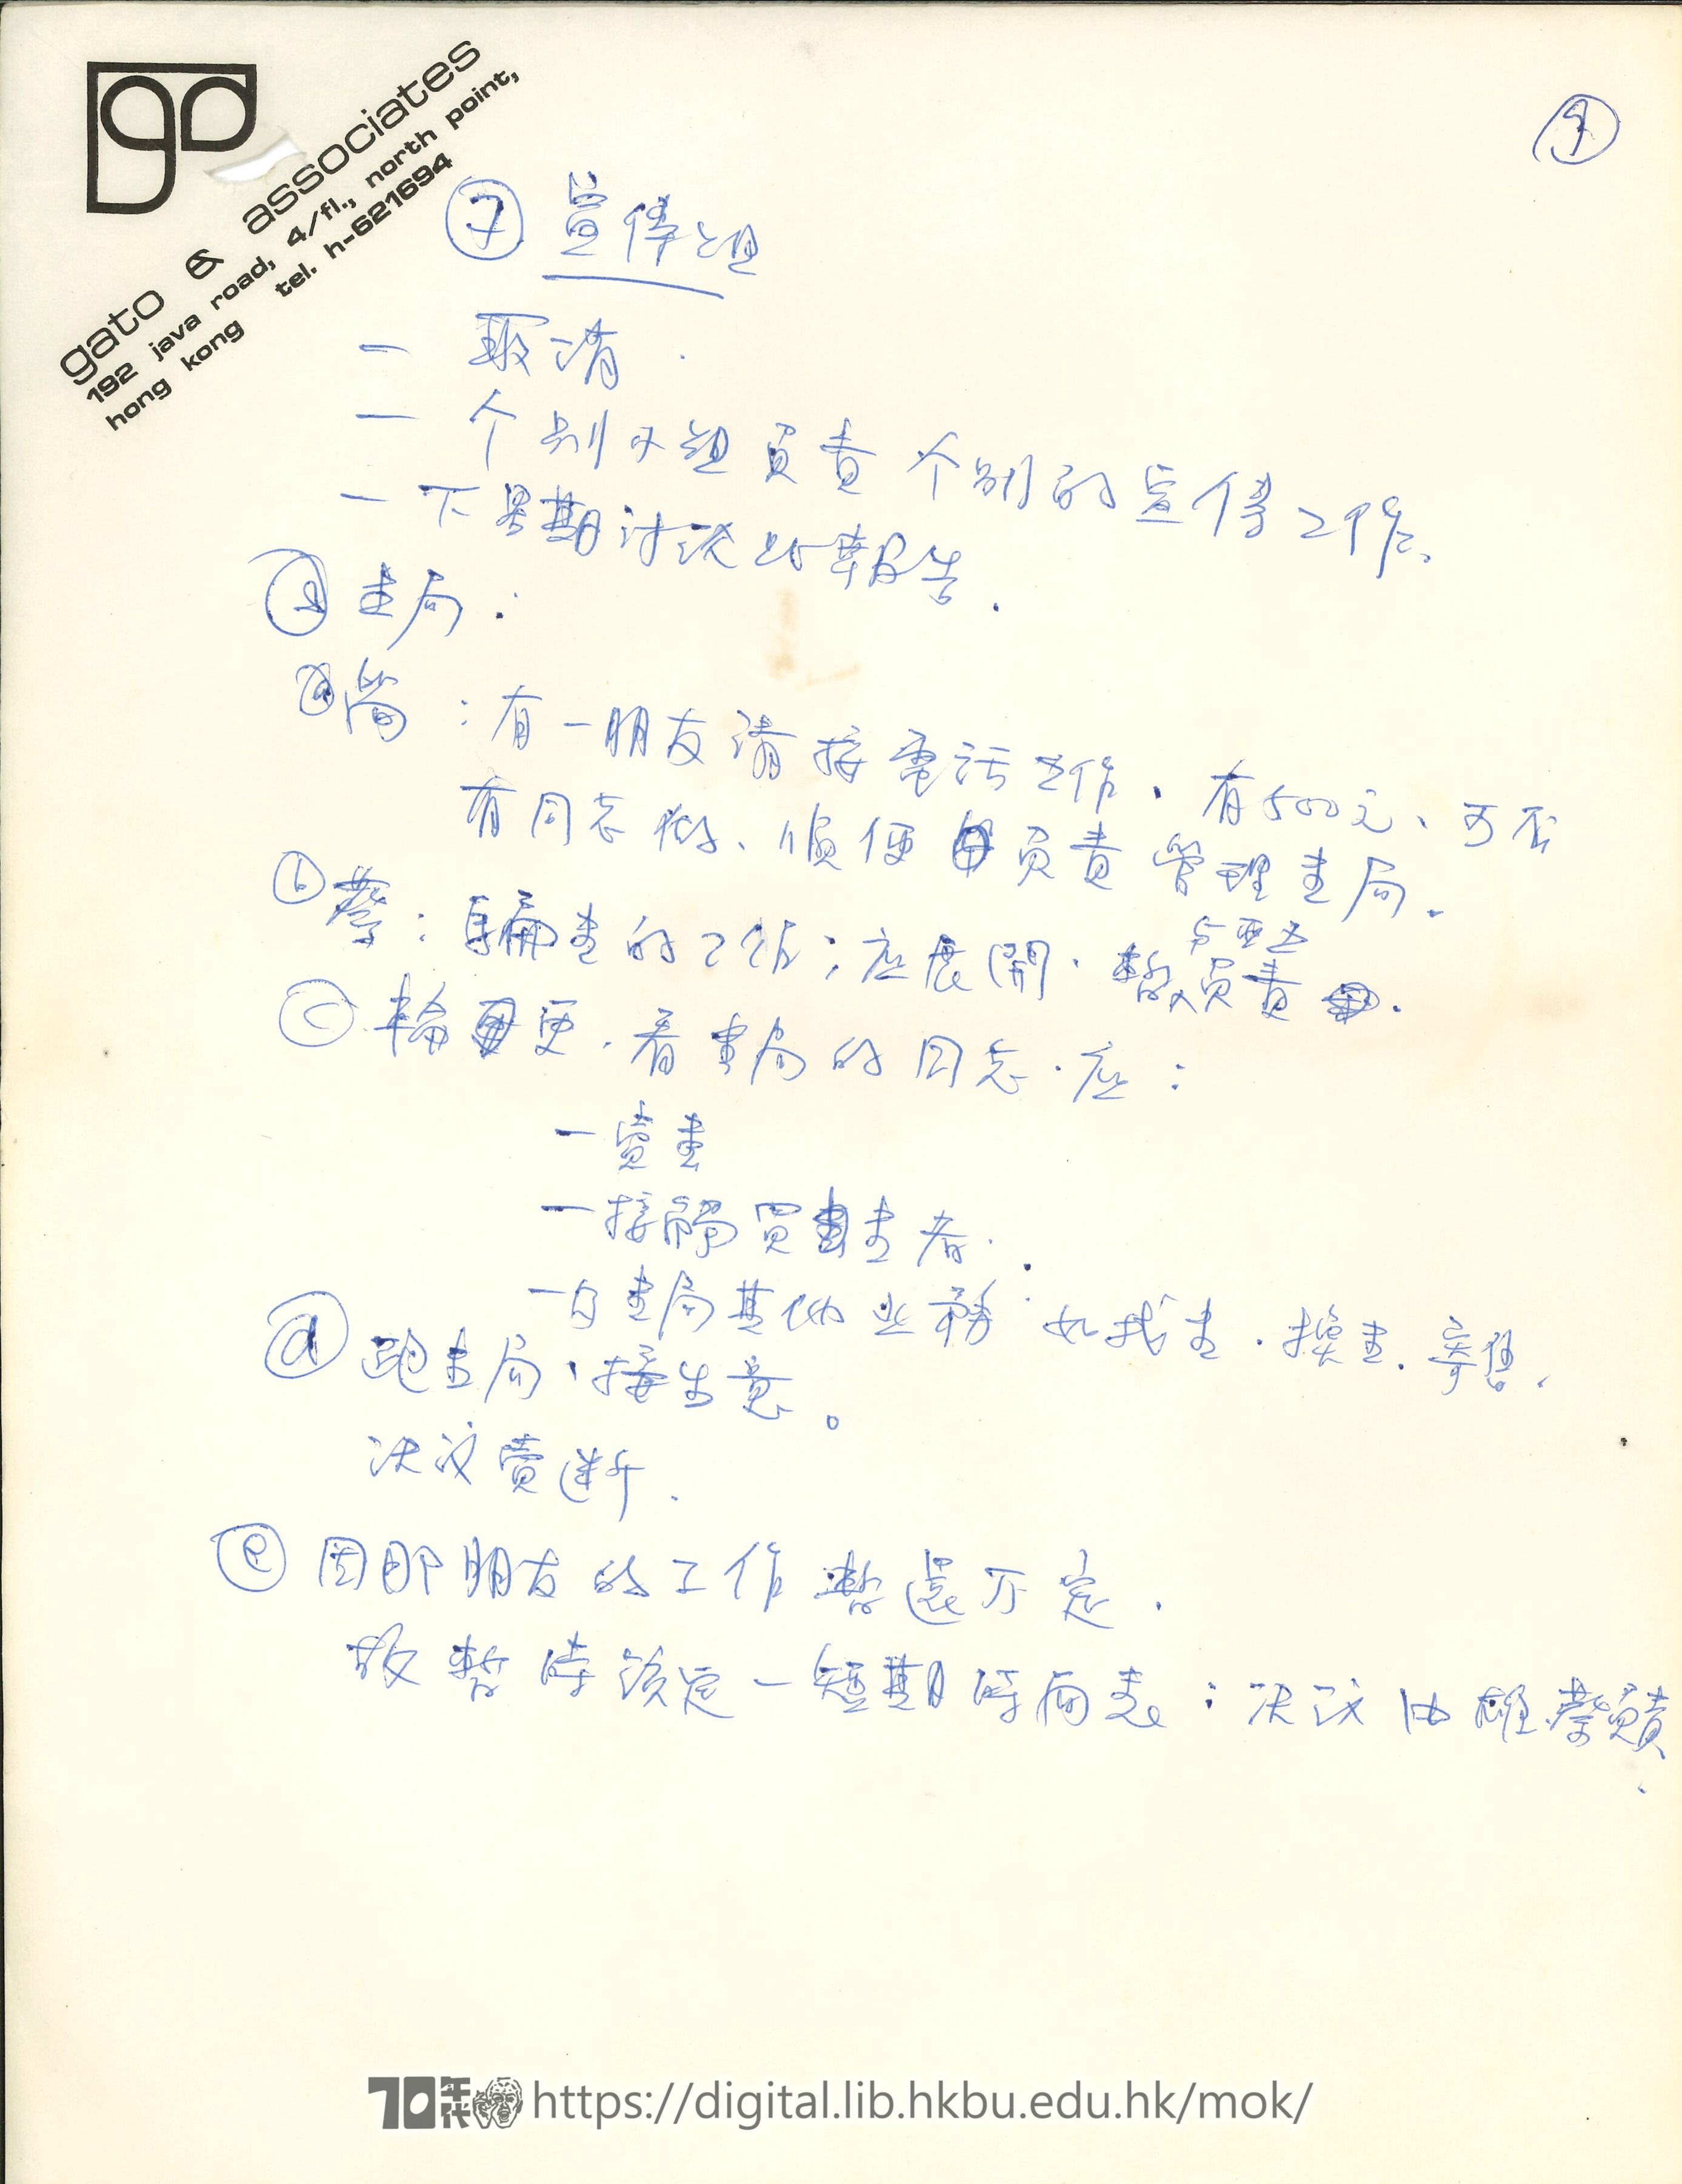 go
gato & associates
192 java road, 4/fl., north point,
hong kong tel. h-621694
⑦ 宣傳組
— 取消.
— 个別小組負責个別的宣傳工作.
— 下星期討論此報告.
書局:
ⓐ 簡:有一朋友請接電話工作.有500元、可否
有同志做、順便負責管理書局.
ⓑ 蔡:編書的工作;應展開.暫負責.
ⓒ 輪更.看書局的同志.應:
— 賣書
— 接觸買書者.
— 書局其他业務.如找書.換書.寄售.
ⓓ 跑書局、接生意。
決议賣斷.
ⓔ 因那朋友的工作暫還不定.
故暫時設定一短期時間表:決议由雄.蔡負責.
70年代 https://digital.lib.hkbu.edu.hk/mok/